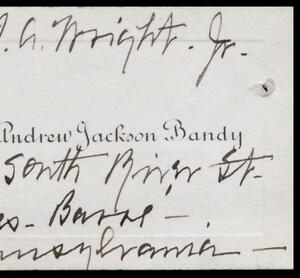 J. A. Wright. Jr.
Andrew Jackson Bandy
South River St.
es-Barre-
nnsylvania-